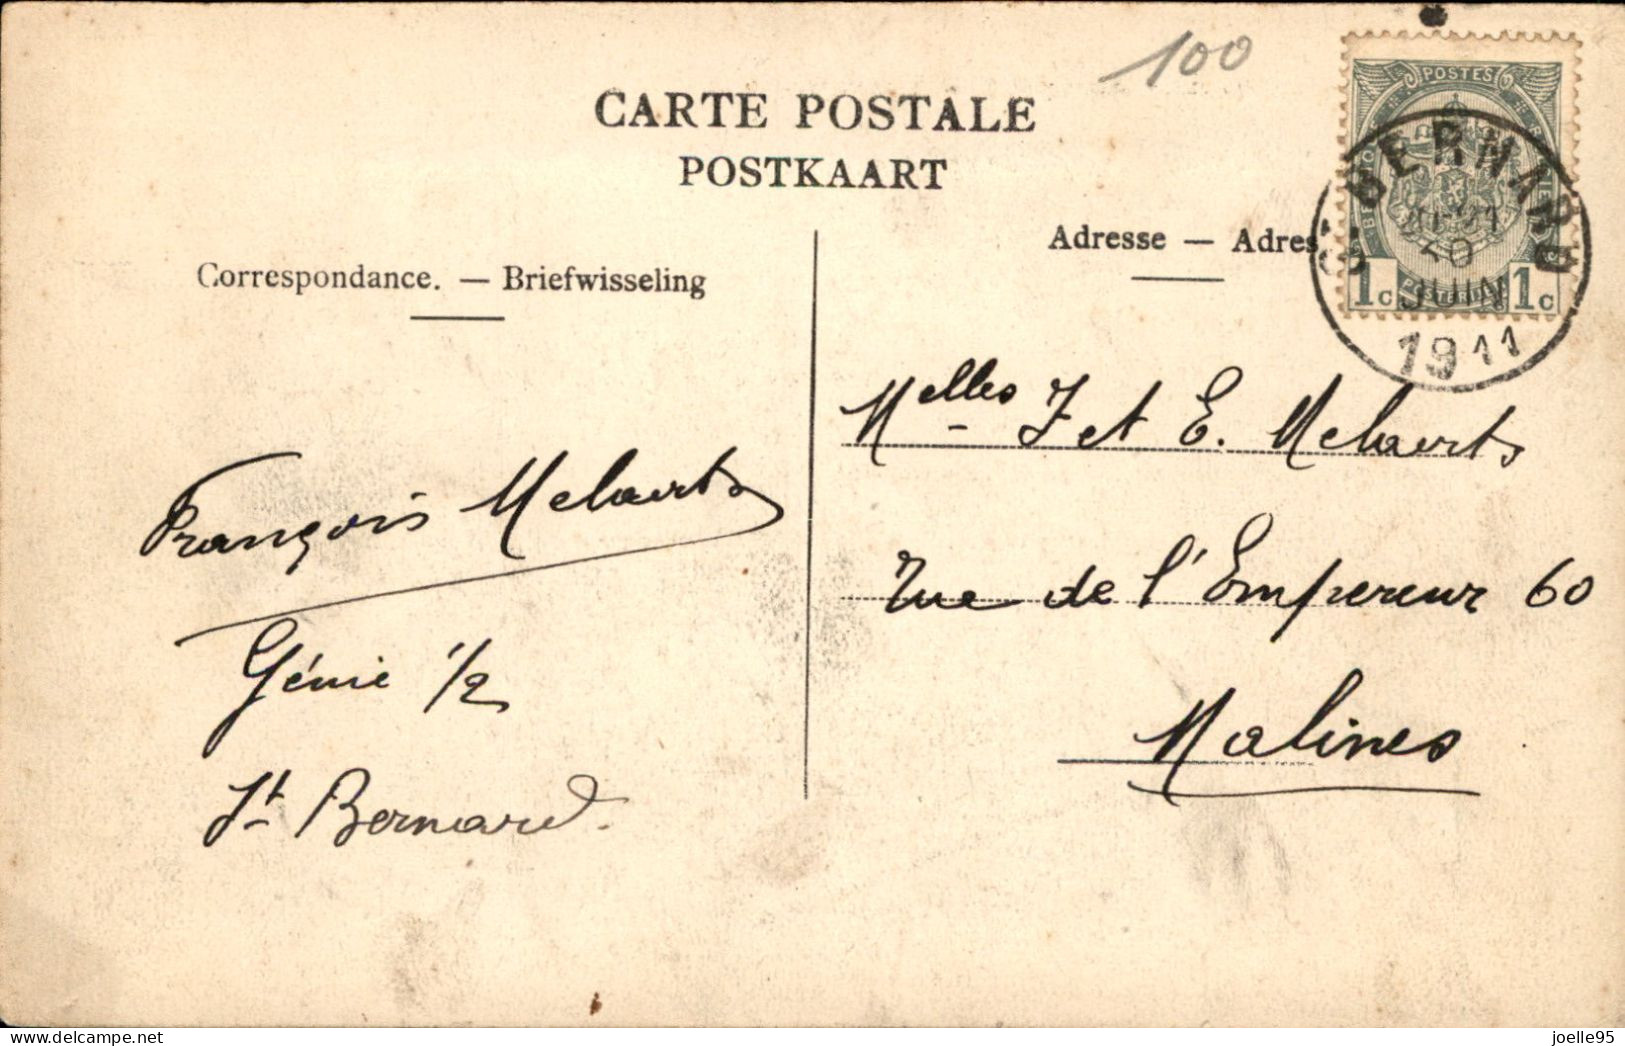 100
CARTE POSTALE
POSTKAART
POSTES
ST BERNARD
JUIN
1911
1c 1c
Correspondance. — Briefwisseling
Adresse — Adres
François Melaerts
Génie 1/2
St Bernard.
Melles J et E. Melaerts
Rue de l'Empereur 60
Malines
delcampe.net
joelle95